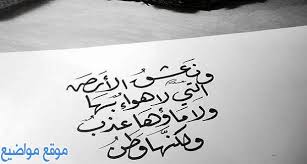 ونعشقُ الأرضَ
التي لا هواءٌ بها
ولا ماؤها عذبُ
ولكنها وطنُ
موقع مواضيع